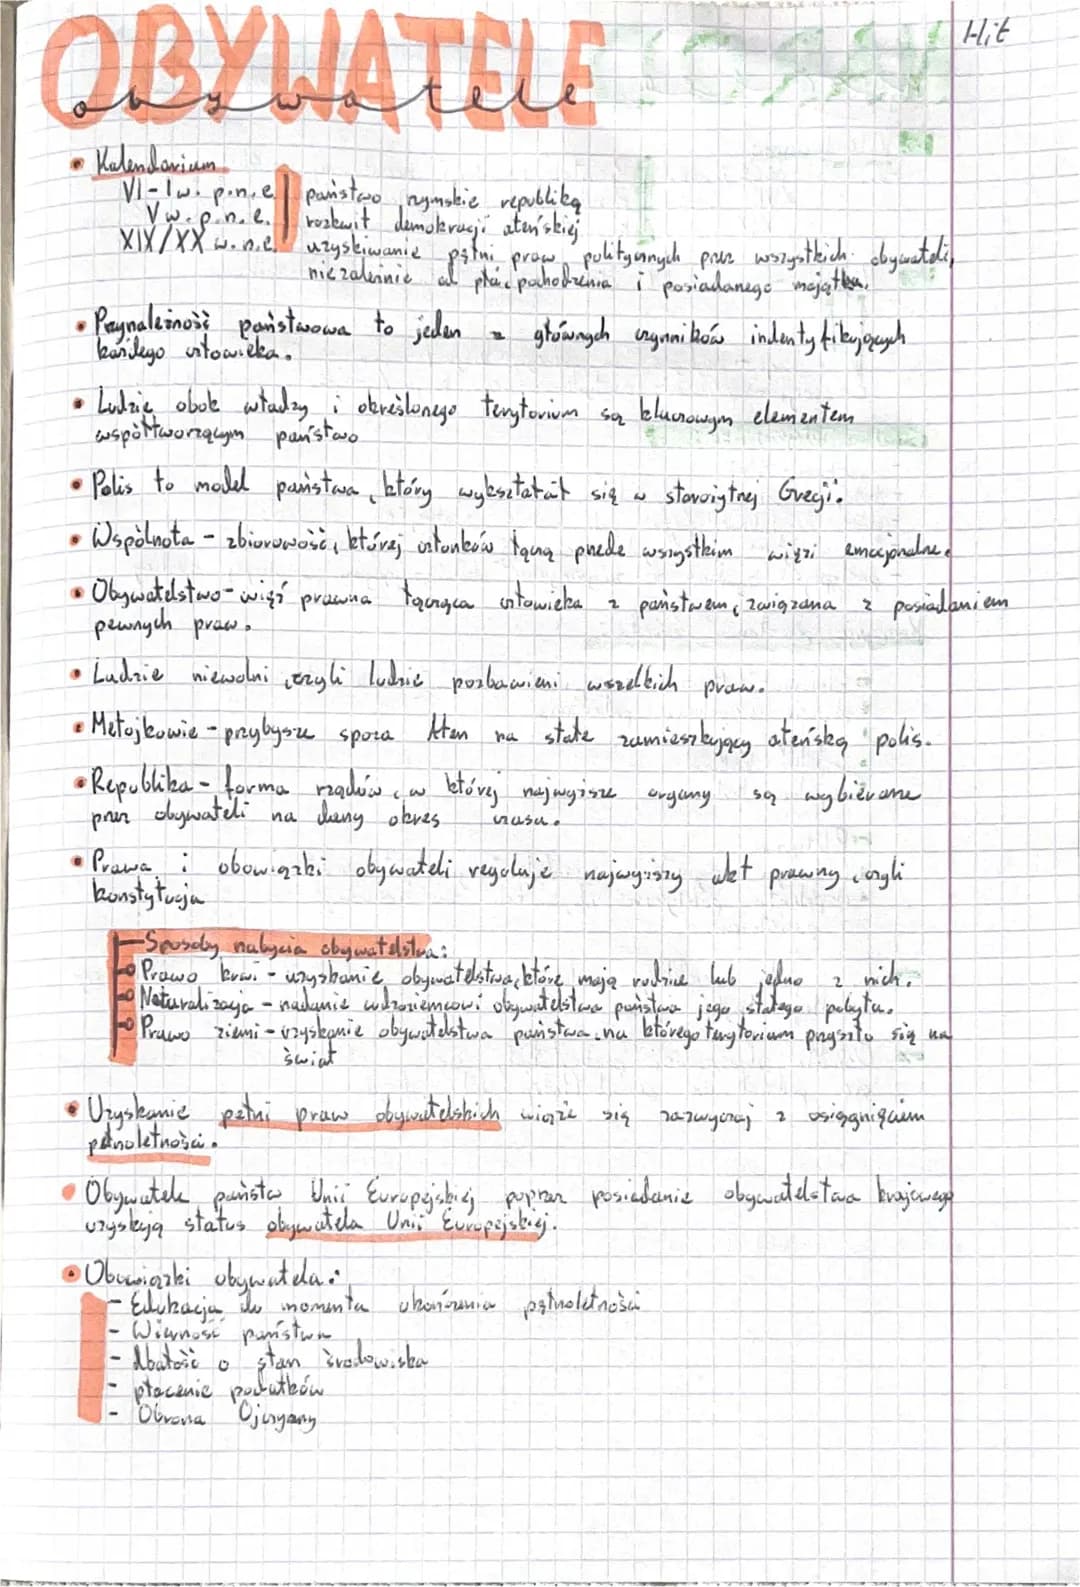 OBYWATELE
obywatele
HiT
• Kalendarium
VI-I w. p.n.e. | państwo rzymskie republiką
V w. p.n.e. | rozkwit demokracji ateńskiej
XIX/XX w. n.e. | uzyskiwanie pełni praw politycznych przez wszystkich obywateli,
niezależnie od płci, pochodzenia i posiadanego majątku.
• Przynależność państwowa to jeden z głównych czynników indentyfikujących
każdego człowieka.
• Ludzie obok władzy i określonego terytorium są kluczowym elementem
współtworzącym państwo
• Polis to model państwa, który wykształcił się w starożytnej Grecji.
• Wspólnota - zbiorowość, której członków łączą przede wszystkim więzi emocjonalne.
• Obywatelstwo - więź prawna łącząca człowieka z państwem, związana z posiadaniem
pewnych praw.
• Ludzie niewolni, czyli ludzie pozbawieni wszelkich praw.
• Metojkowie - przybysze spoza Aten na stałe zamieszkujący ateńską polis.
• Republika - forma rządów, w której najwyższe organy są wybierane
przez obywateli na dany okres czasu.
• Prawa i obowiązki obywateli reguluje najwyższy akt prawny, czyli
konstytucja
Sposoby nabycia obywatelstwa:
Prawo krwi - uzyskanie obywatelstwa, które mają rodzice lub jedno z nich.
Naturalizacja - nadanie cudzoziemcowi obywatelstwa państwa jego stałego pobytu.
Prawo ziemi - uzyskanie obywatelstwa państwa, na którego terytorium przyszło się na
świat
• Uzyskanie pełni praw obywatelskich wiąże się zazwyczaj z osiągnięciem
pełnoletności.
• Obywatele państw Unii Europejskiej poprzez posiadanie obywatelstwa krajowego
uzyskują status obywatela Unii Europejskiej.
• Obowiązki obywatela:
- Edukacja do momentu ukończenia pełnoletności
- Wierność państwu
- dbałość o stan środowiska
- płacenie podatków
- Obrona Ojczyzny